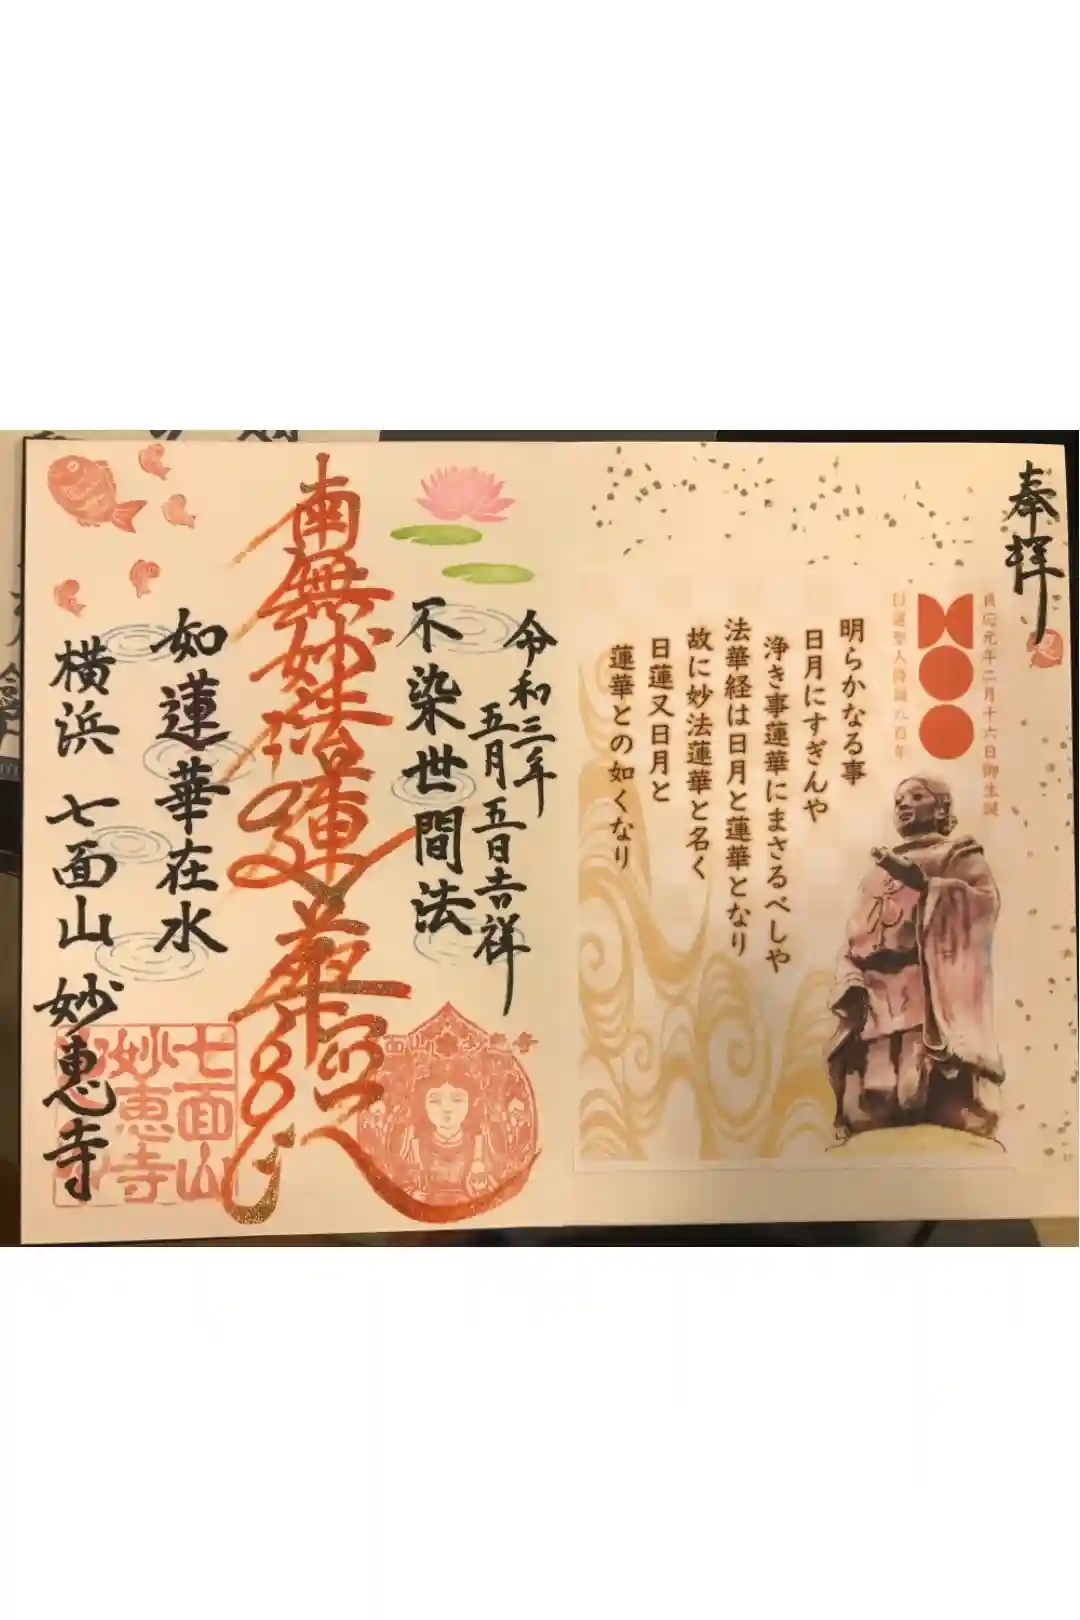 奉拝
貞応元年二月十六日御生誕
日蓮聖人降誕八百年
明らかなる事
日月にすぎんや
浄き事蓮華にまさるべしや
法華経は日月と蓮華となり
故に妙法蓮華と名く
日蓮又日月と
蓮華との如くなり
令和三年
五月五日吉祥
不染世間法
南無妙法蓮華経
如蓮華在水
横浜 七面山 妙恵寺
七面山
妙恵寺